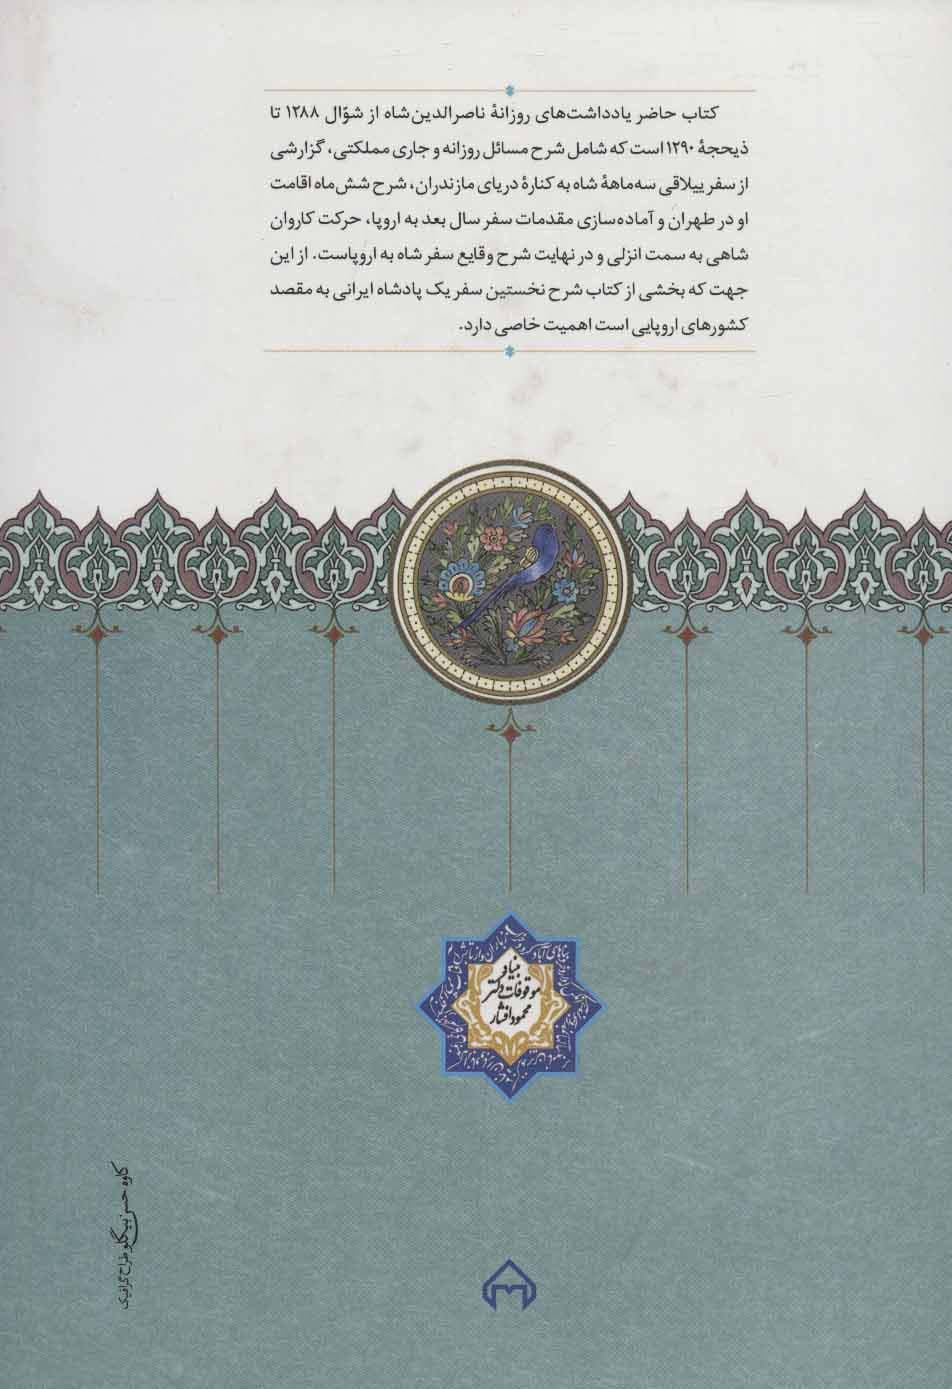 کتاب حاضر یادداشت‌های روزانهٔ ناصرالدین‌شاه از شوّال ۱۲۸۸ تا
ذیحجهٔ ۱۲۹۰ است که شامل شرح مسائل روزانه و جاری مملکتی، گزارشی
از سفر ییلاقی سه‌ماههٔ شاه به کنارهٔ دریای مازندران، شرح شش‌ماه اقامت
او در طهران و آماده‌سازی مقدمات سفر سال بعد به اروپا، حرکت کاروان
شاهی به سمت انزلی و در نهایت شرح وقایع سفر شاه به اروپاست. از این
جهت که بخشی از کتاب شرح نخستین سفر یک پادشاه ایرانی به مقصد
کشورهای اروپایی است اهمیت خاصی دارد.
بنیاد
موقوفات دکتر
محمود افشار
کاوه حسن بیگلو طراح گرافیک